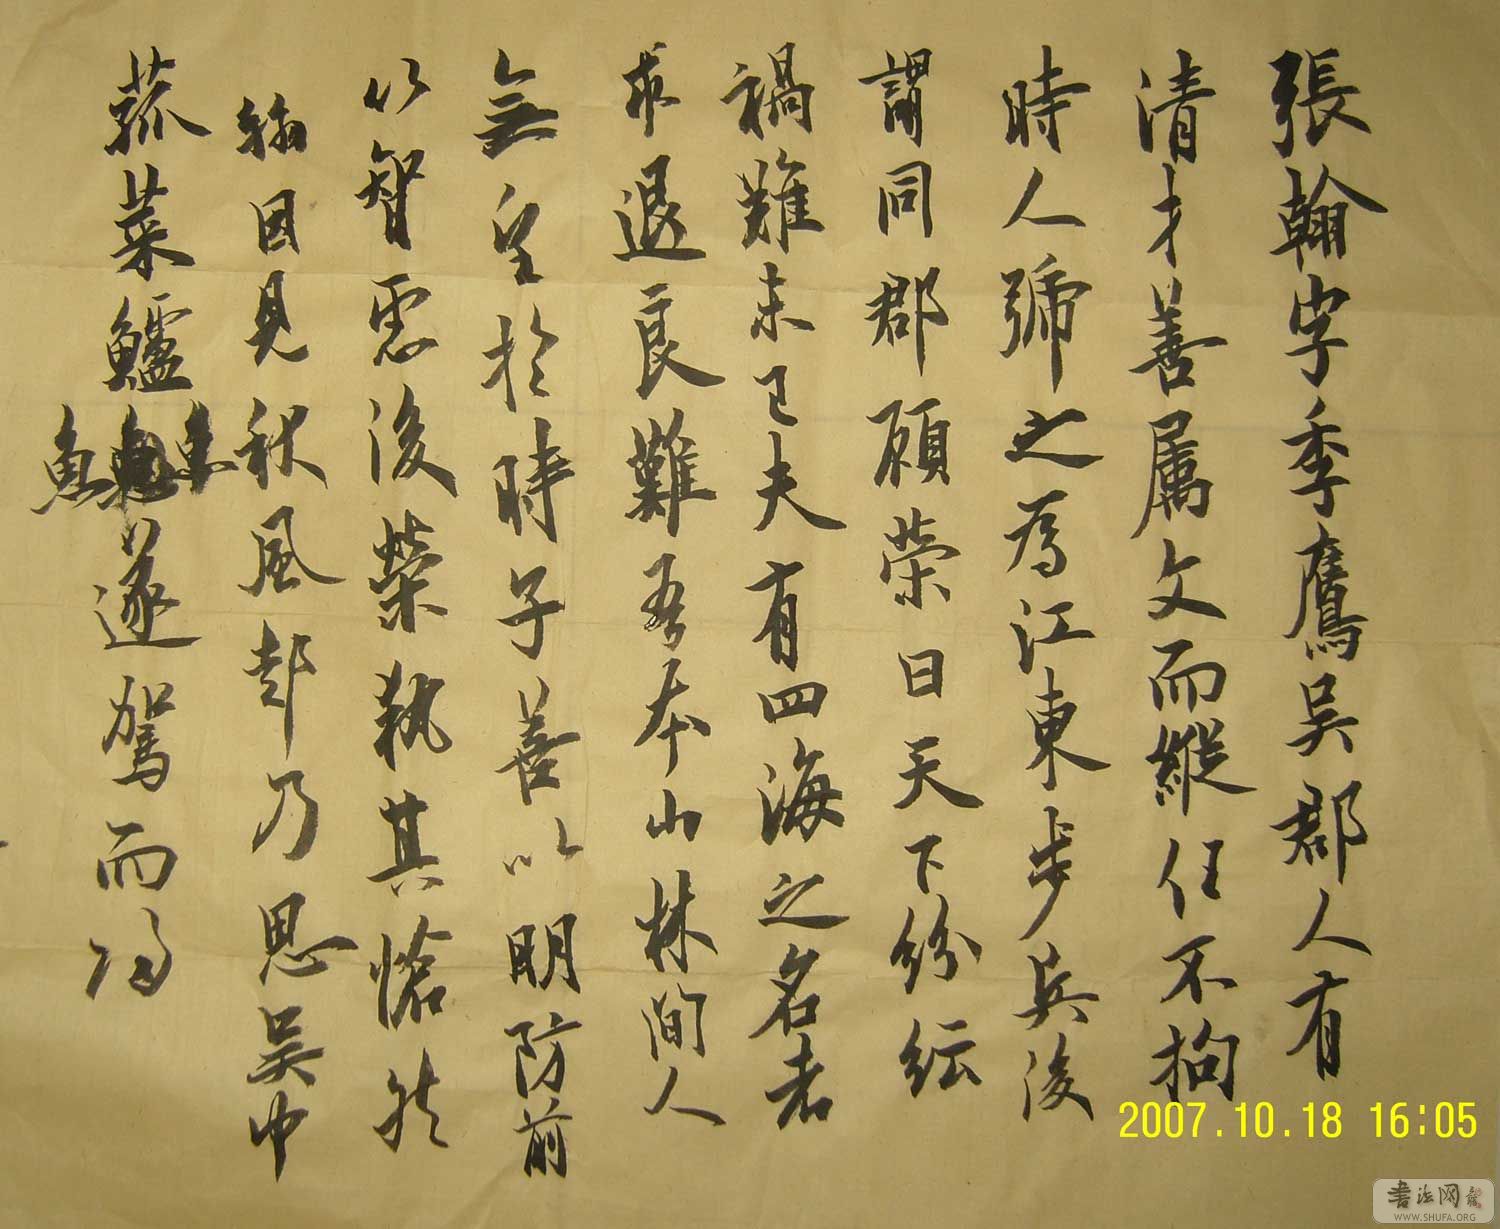 張翰字季鷹吳郡人有
清才善属文而縱任不拘
時人號之為江東步兵後
謂同郡顧榮曰天下紛紜
禍難未已夫有四海之名者
求退良難吾本山林間人
無望於時子善以明防前
以智慮後榮執其愴然
翰因見秋風起乃思吳中
菰菜鱸
魚
魚遂駕而歸
2007.10.18 16:05
書法网
WWW.SHUFA.ORG